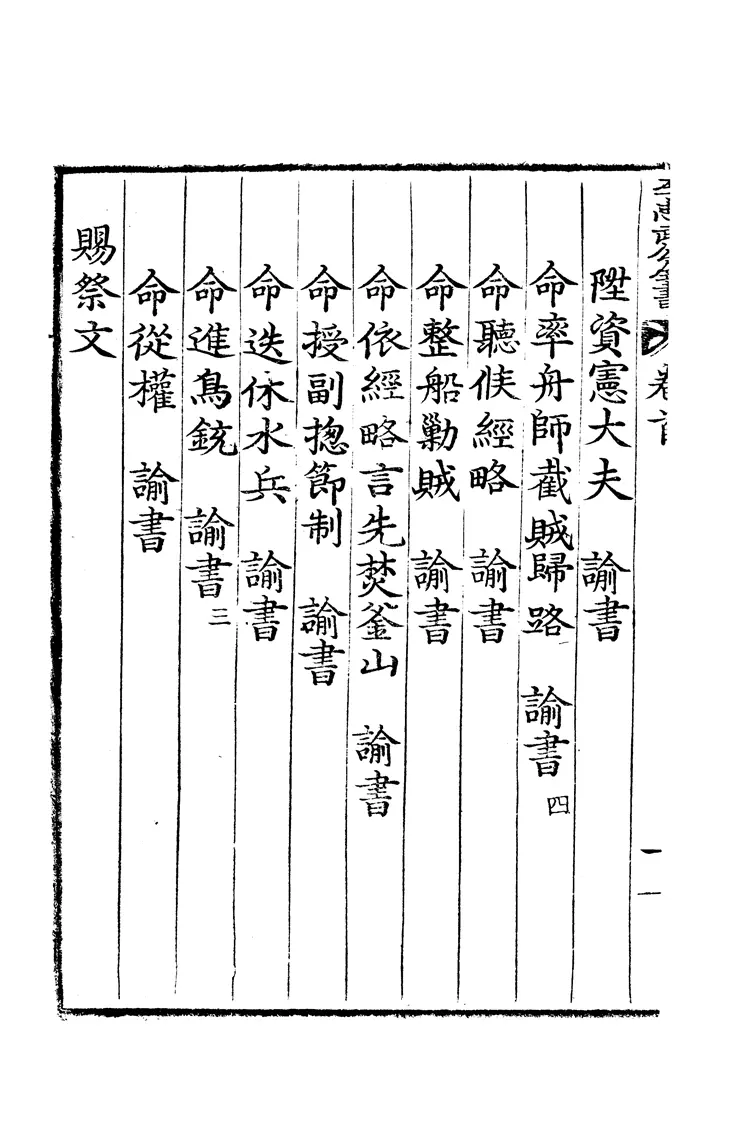 李忠武公全書 卷首 一
陞資憲大夫 諭書
命率舟師截賊歸路 諭書四
命聽候經略 諭書
命整船勦賊 諭書
命依經略言先焚釜山 諭書
命授副摠節制 諭書
命迭休水兵 諭書
命進鳥銃 諭書三
命從權 諭書
賜祭文